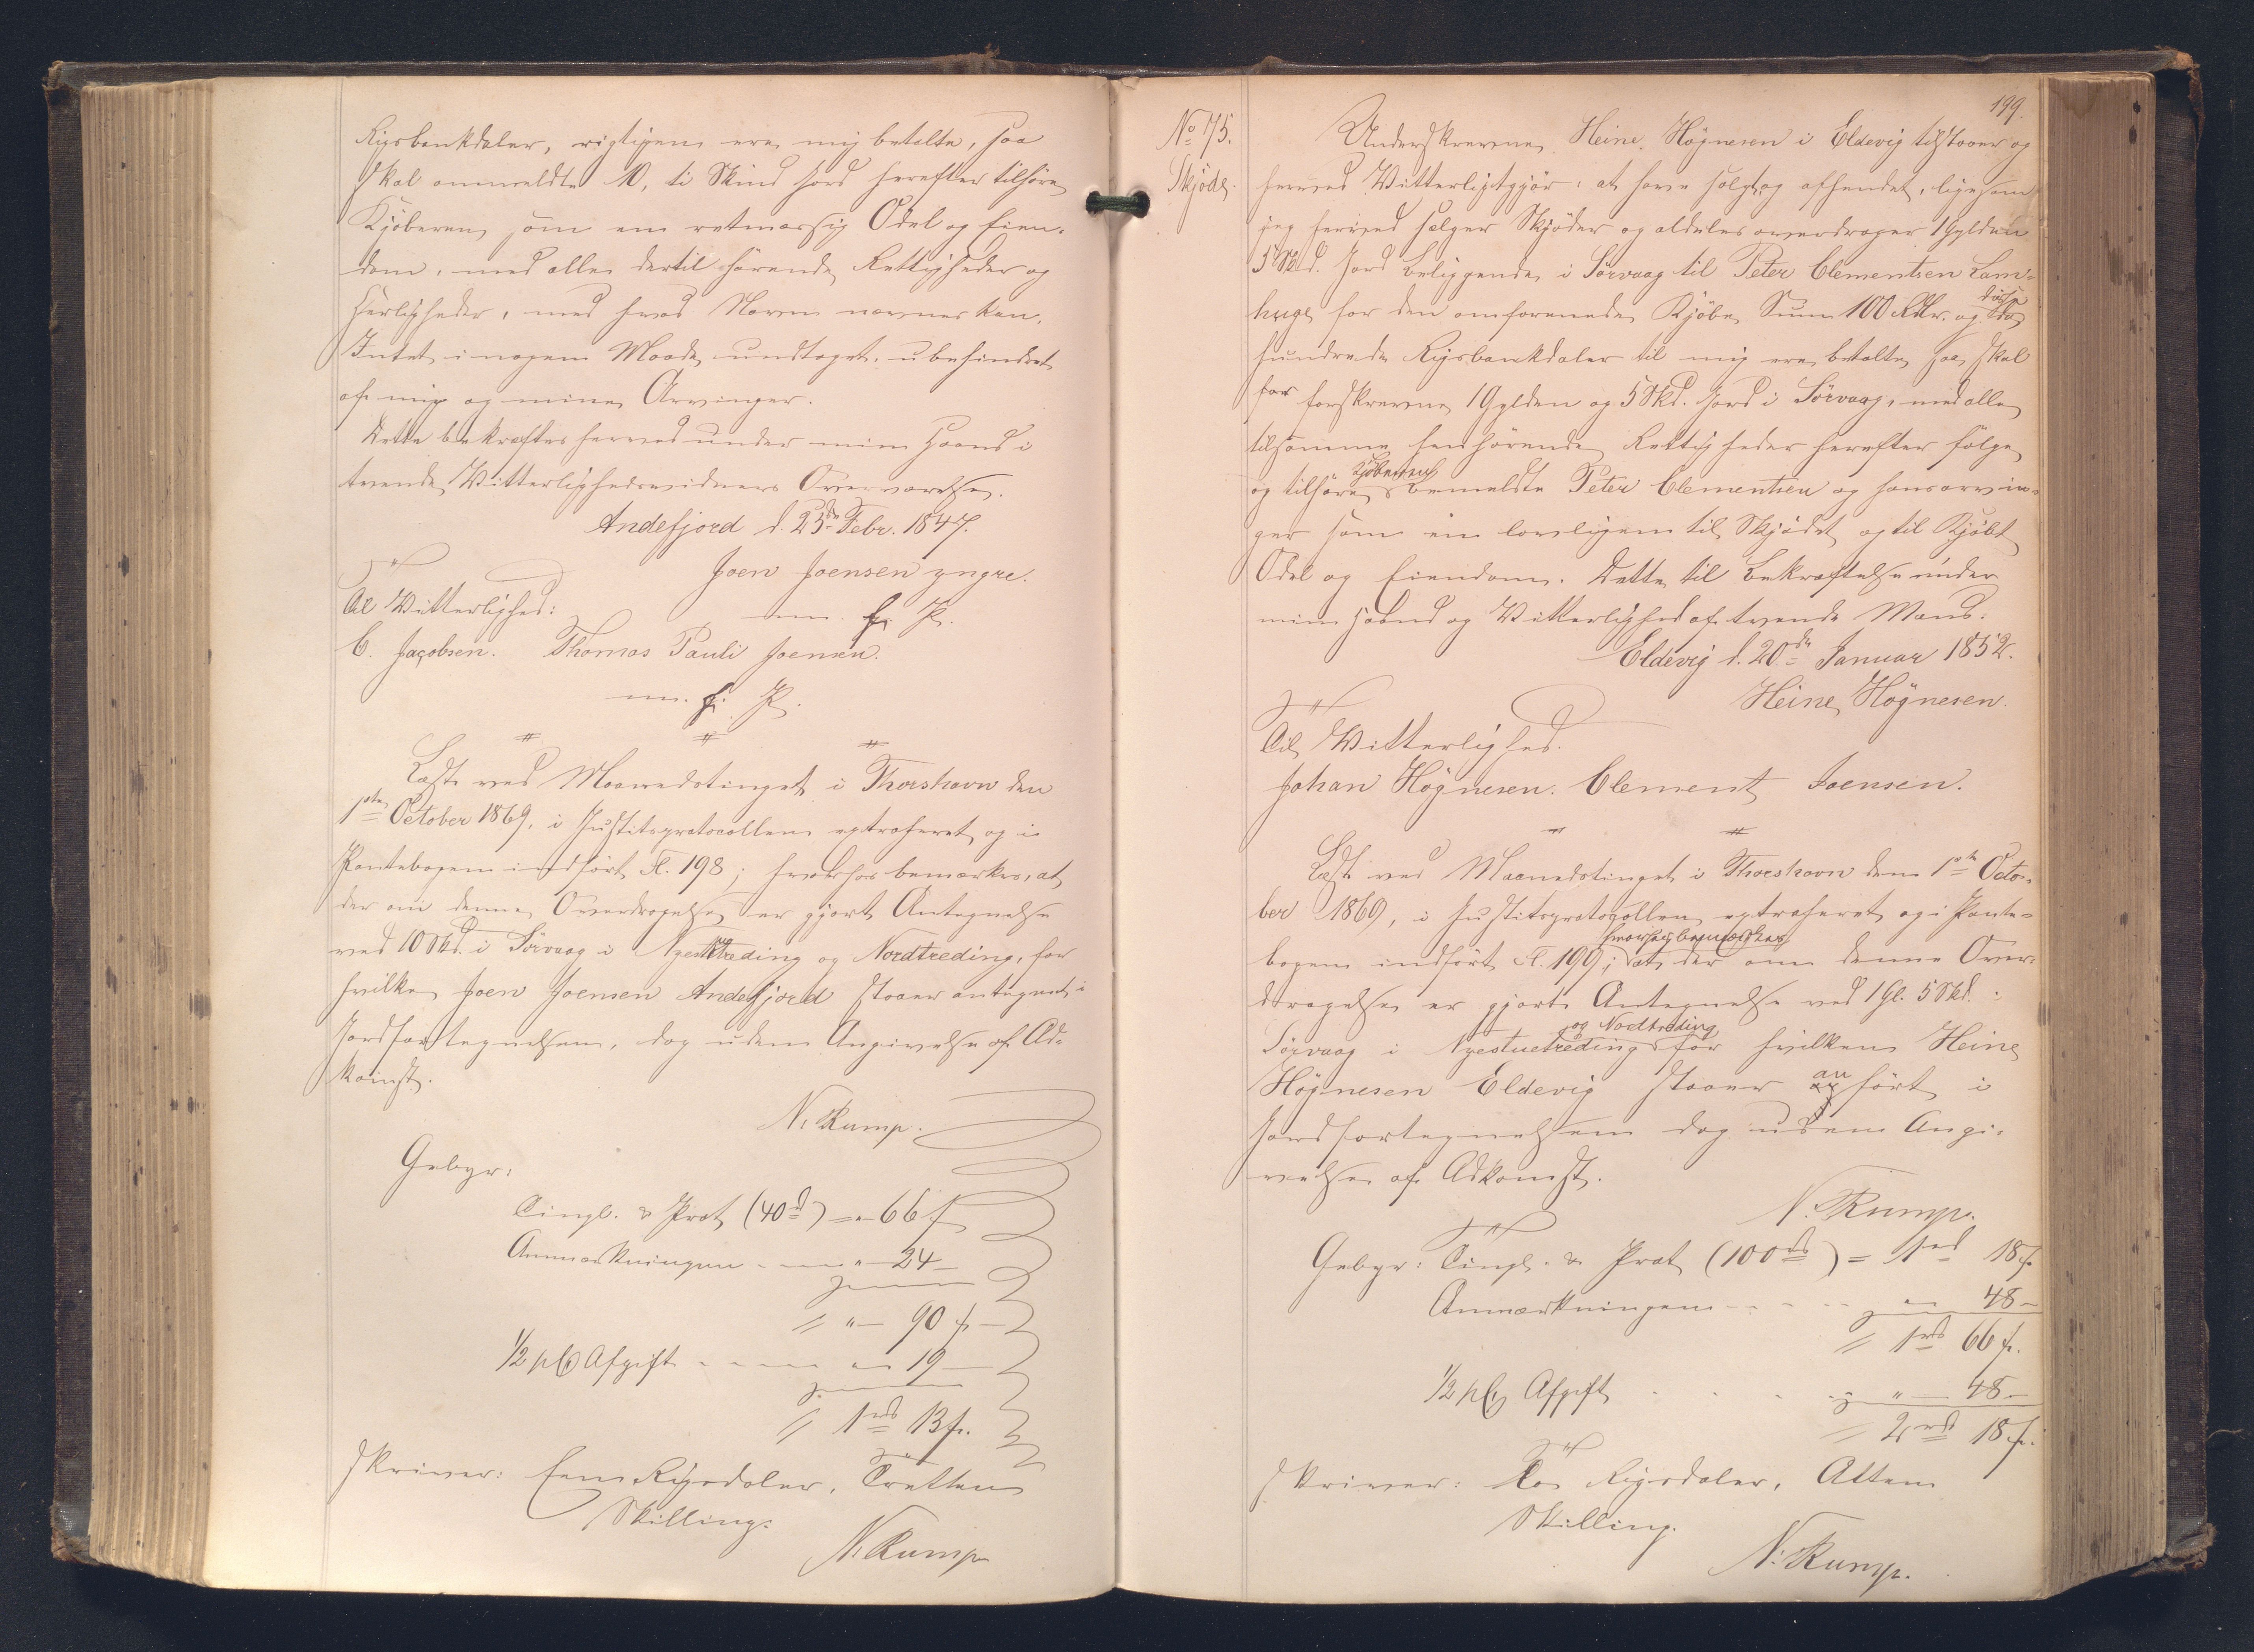 Rigsbankdaler, rigtigen ere mig betalte, saa
skal anmeldte 10, ti Skind Jord herefter tilhöre
Kjöberen som en retmæssig Odel og Eien-
dom, med alle dertil hörende Rettigheder og
Herligheder, med hvad Navn nævnes kan,
Intet i nogen Maade undtaget, ubehindret
af mig og mine Arvinger.
Dette bekræftes herved under min Haand i
tvende Vitterlighedsvidners Overværelse.
Andefjord d. 25de Febr. 1847.
Joen Joensen yngre.
Til Vitterlighed:
m. f. P.
C. Jacobsen. Thomas Pauli Joensen.
m. f. P.
Læst ved Maanedstinget i Thorshavn den
1ste October 1869, i Justitsprotocollen extraheret og i
Pantebogen indfört Fl. 198; hvorhos bemærkes, at
der om denne Overdragelse er gjort Antegnelse
ved 10 Skd. i Sörvaag i Nyestuetreding og Nordtreding, for
hvilke Joen Joensen Andefjord staaer antegnet i
Jordfortegnelsen, dog uden Angivelse af Ad-
komst.
N. Rump.
Gebyr:
Tingl. & Prot (40d) = " 66 s
Anmærkningen " 24 -
" 90 s
1/2 pC Afgift " 19
1 rd 13 s.
skriver: Een Rigsdaler, Tretten
Skilling.
N. Rump
199.
No 75.
Skjöde.
Underskrevne Heine Högnesen i Eldevig tilstaaer og
herved Witterligtgjör: at have solgt og afhendet, ligesom
jeg herved sælger Skjöder og aldeles overdrager 1 Gylden
5 Skd. Jord beliggende i Sörvaag til Peter Clementsen Lam-
huge for den omforenede Kjöbe Sum 100 Rdlr. og da disse
hundrede Rigsbankdaler til mig ere betalte saa skal
for forskrevne 1 Gylden og 5 Skd. Jord i Sörvaag, med alle
tilsamme henhörende Rettigheder herefter fölge
og tilhöre Kjöberen bemeldte Peter Clementsen og hans arvin-
ger som en lovligen til Skjödet og til Kjöbt
Odel og Eiendom. Dette til Bekræftelse under
min Haand og Vitterlighed af tvende Mænd.
Eldevig d. 20de Januar 1852.
Heine Högnesen.
Til Witterlighed.
Johan Högnesen. Clement Joensen.
Læst ved Maanedstinget i Thorshavn den 1ste Octo-
ber 1869, i Justitsprotocollen extraheret og i Pante-
bogen indfört Fl. 199; hvorhos bemærkes at der om denne Over-
dragelse er gjort Antegnelse ved 1 Gl. 5 Skd. i
Sörvaag i Nyestuetreding og Nordtreding for hvilken Heine
Högnesen Eldevig staaer anfört i
Jordfortegnelsen dog uden Angi-
velse af Adkomst.
N. Rump.
Gebyr: Tingl. & Prot (100rd) = 1rd 18 s
Anmærkningen " 48 -
1rd 66 s.
1/2 pC Afgift " 48 -
2rd 18 s.
skriver: To Rigsdaler, Atten
Skilling.
N. Rump.